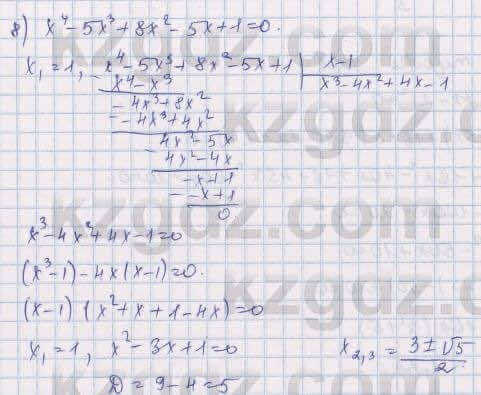 8) x⁴-5x³+8x²-5x+1=0.
x₁=1, x⁴-5x³+8x²-5x+1 | x-1
- x⁴-x³ x³-4x²+4x-1
-4x³+8x²
- -4x³+4x²
4x²-5x
- 4x²-4x
-x+1
- -x+1
0
x³-4x²+4x-1=0
(x³-1)-4x(x-1)=0.
(x-1)(x²+x+1-4x)=0
x₁=1, x²-3x+1=0 x₂,₃=(3±√5)/2
D=9-4=5
kzgdz.com